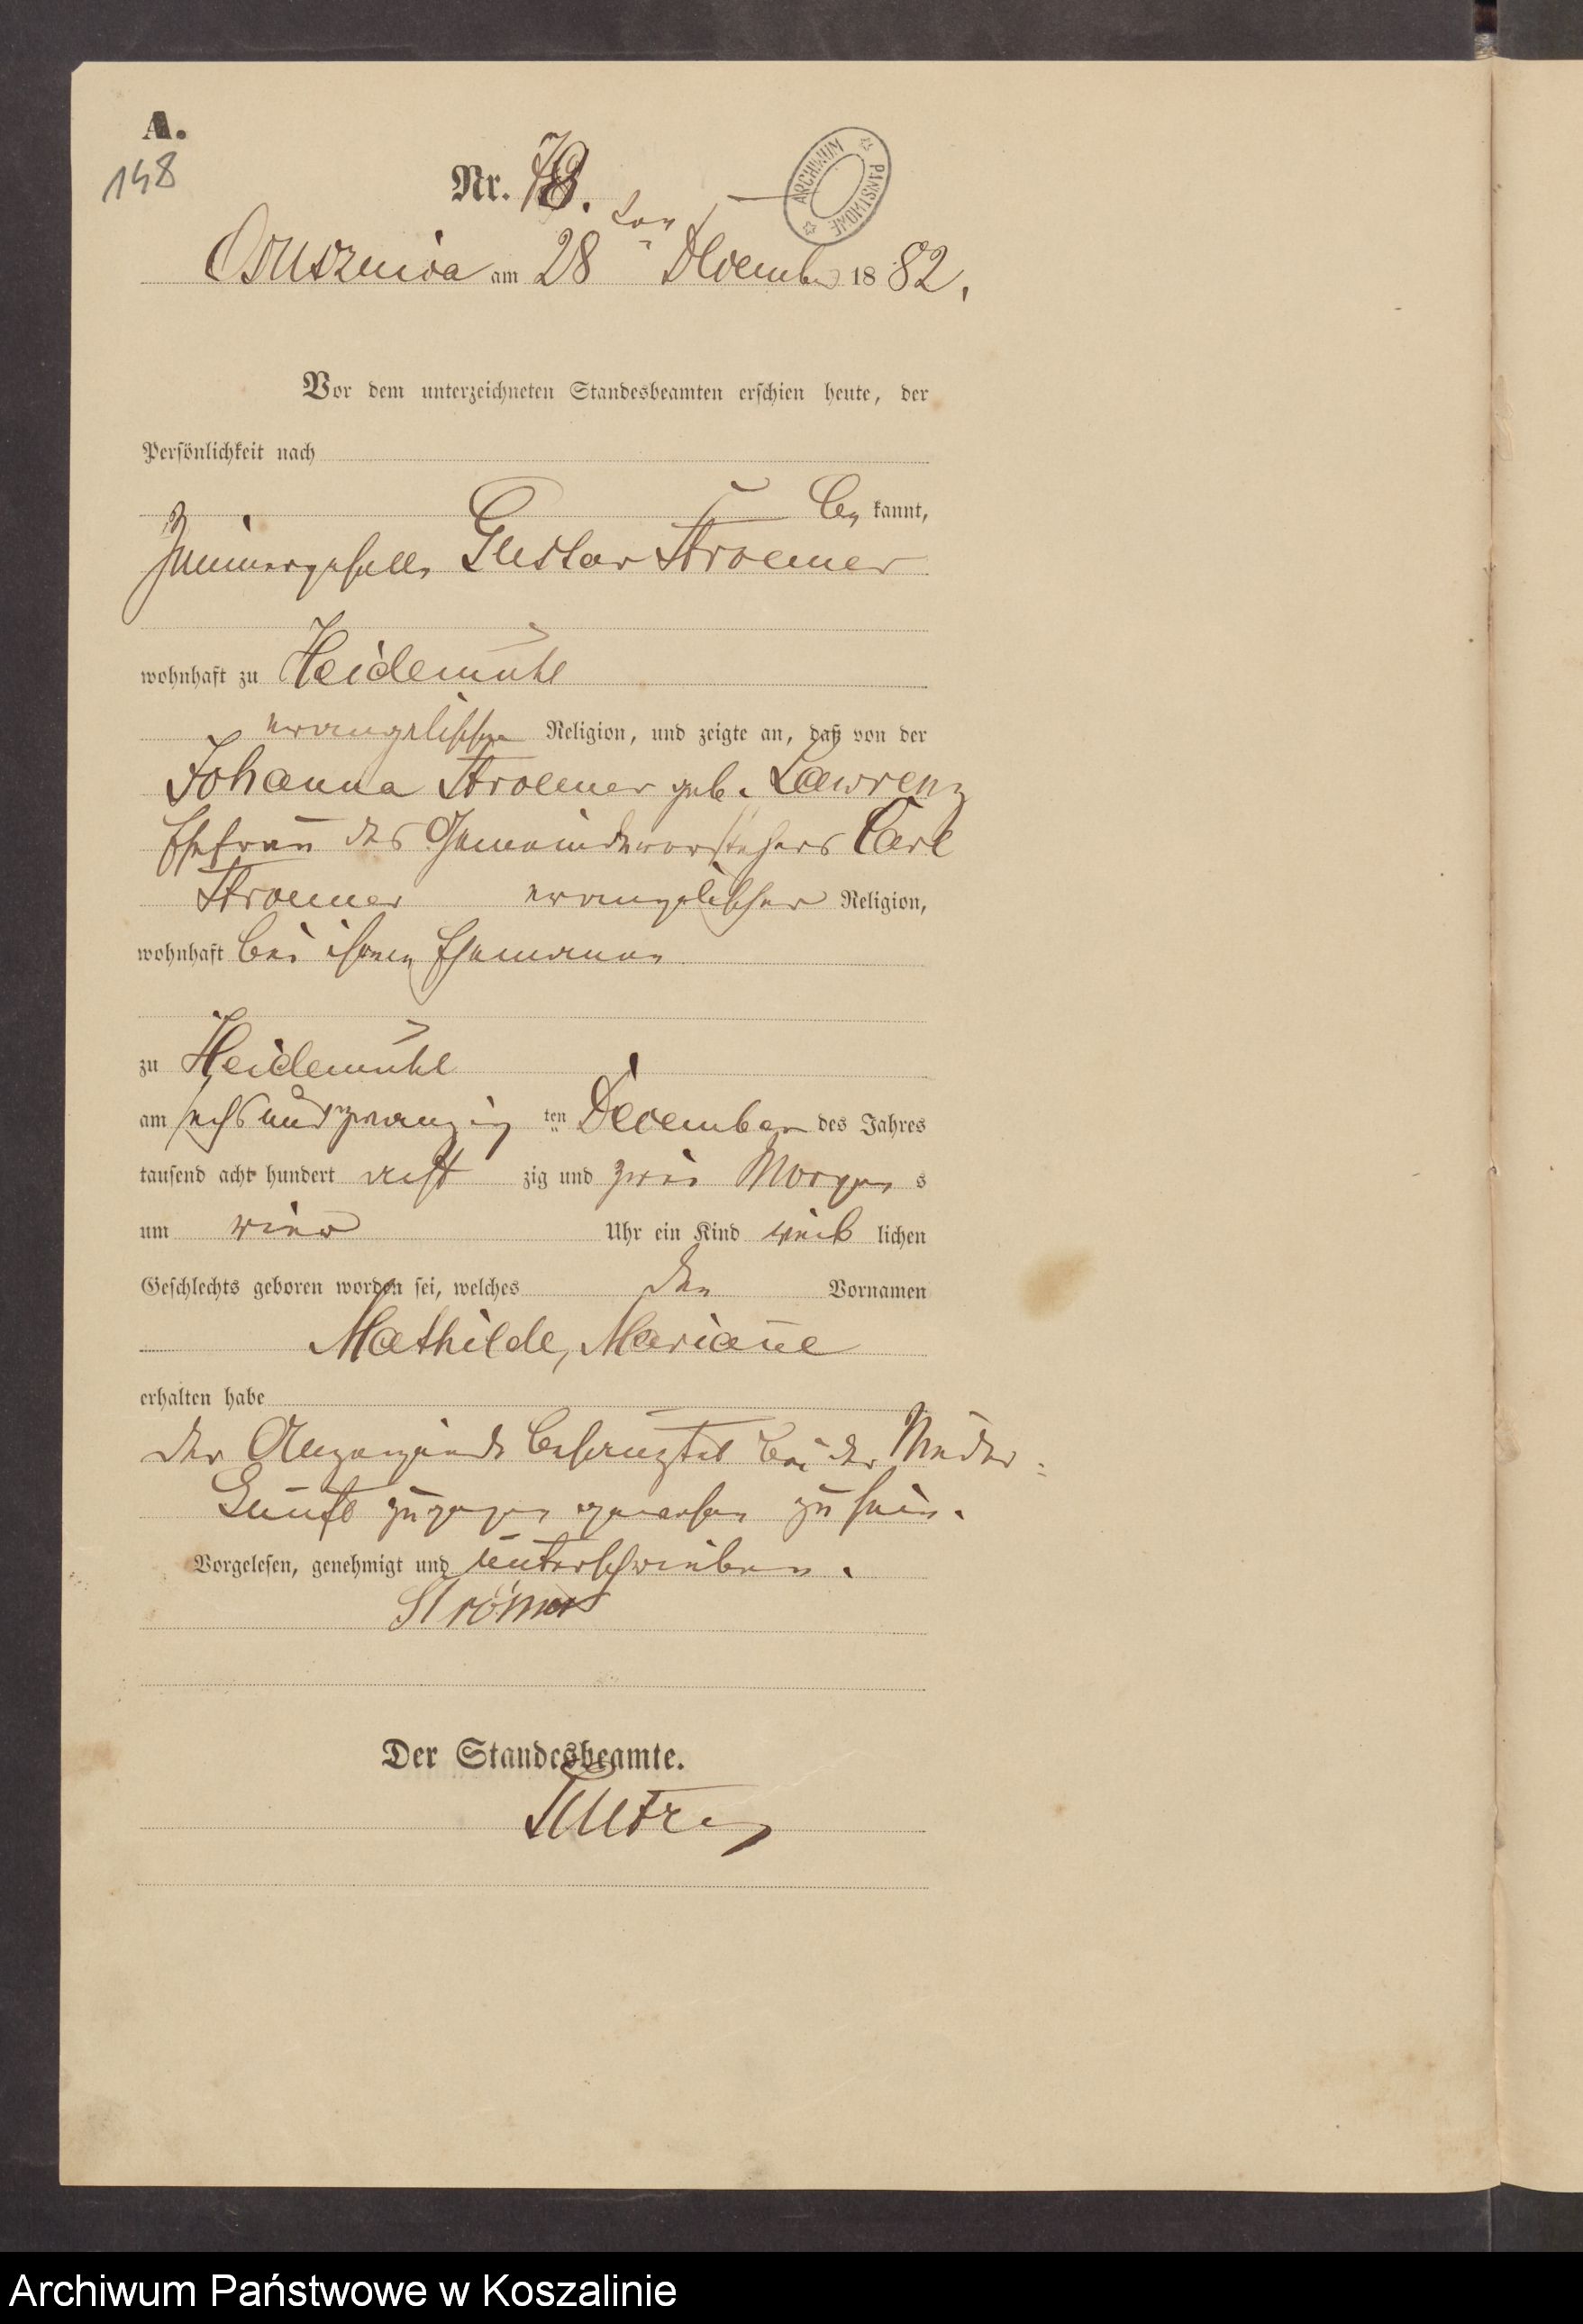 A.
148
Nr. 78.
ARCHIWUM PAŃSTWOWE
Osusznica am 28 ten December 1882.
Vor dem unterzeichneten Standesbeamten erschien heute, der
Persönlichkeit nach
be kannt,
Zimmergeselle Gustav Stroemer
wohnhaft zu Heidemühl
evangelischer Religion, und zeigte an, daß von der
Johanna Stroemer geb. Lawrenz
Ehefrau des Gemeindevorstehers Carl
Stroemer evangelischer Religion,
wohnhaft bei ihrem Ehemanne
zu Heidemühl
am sechsundzwanzig ten December des Jahres
tausend acht hundert acht zig und zwei Morgens
um vier Uhr ein Kind weiblichen
Geschlechts geboren worden sei, welches den Vornamen
Mathilde, Mariane
erhalten habe
der Anzeigende bei der Nieder-
kunft zugegen gewesen zu sein.
Vorgelesen, genehmigt und unterschrieben.
Strömer
Der Standesbeamte.
Archiwum Państwowe w Koszalinie